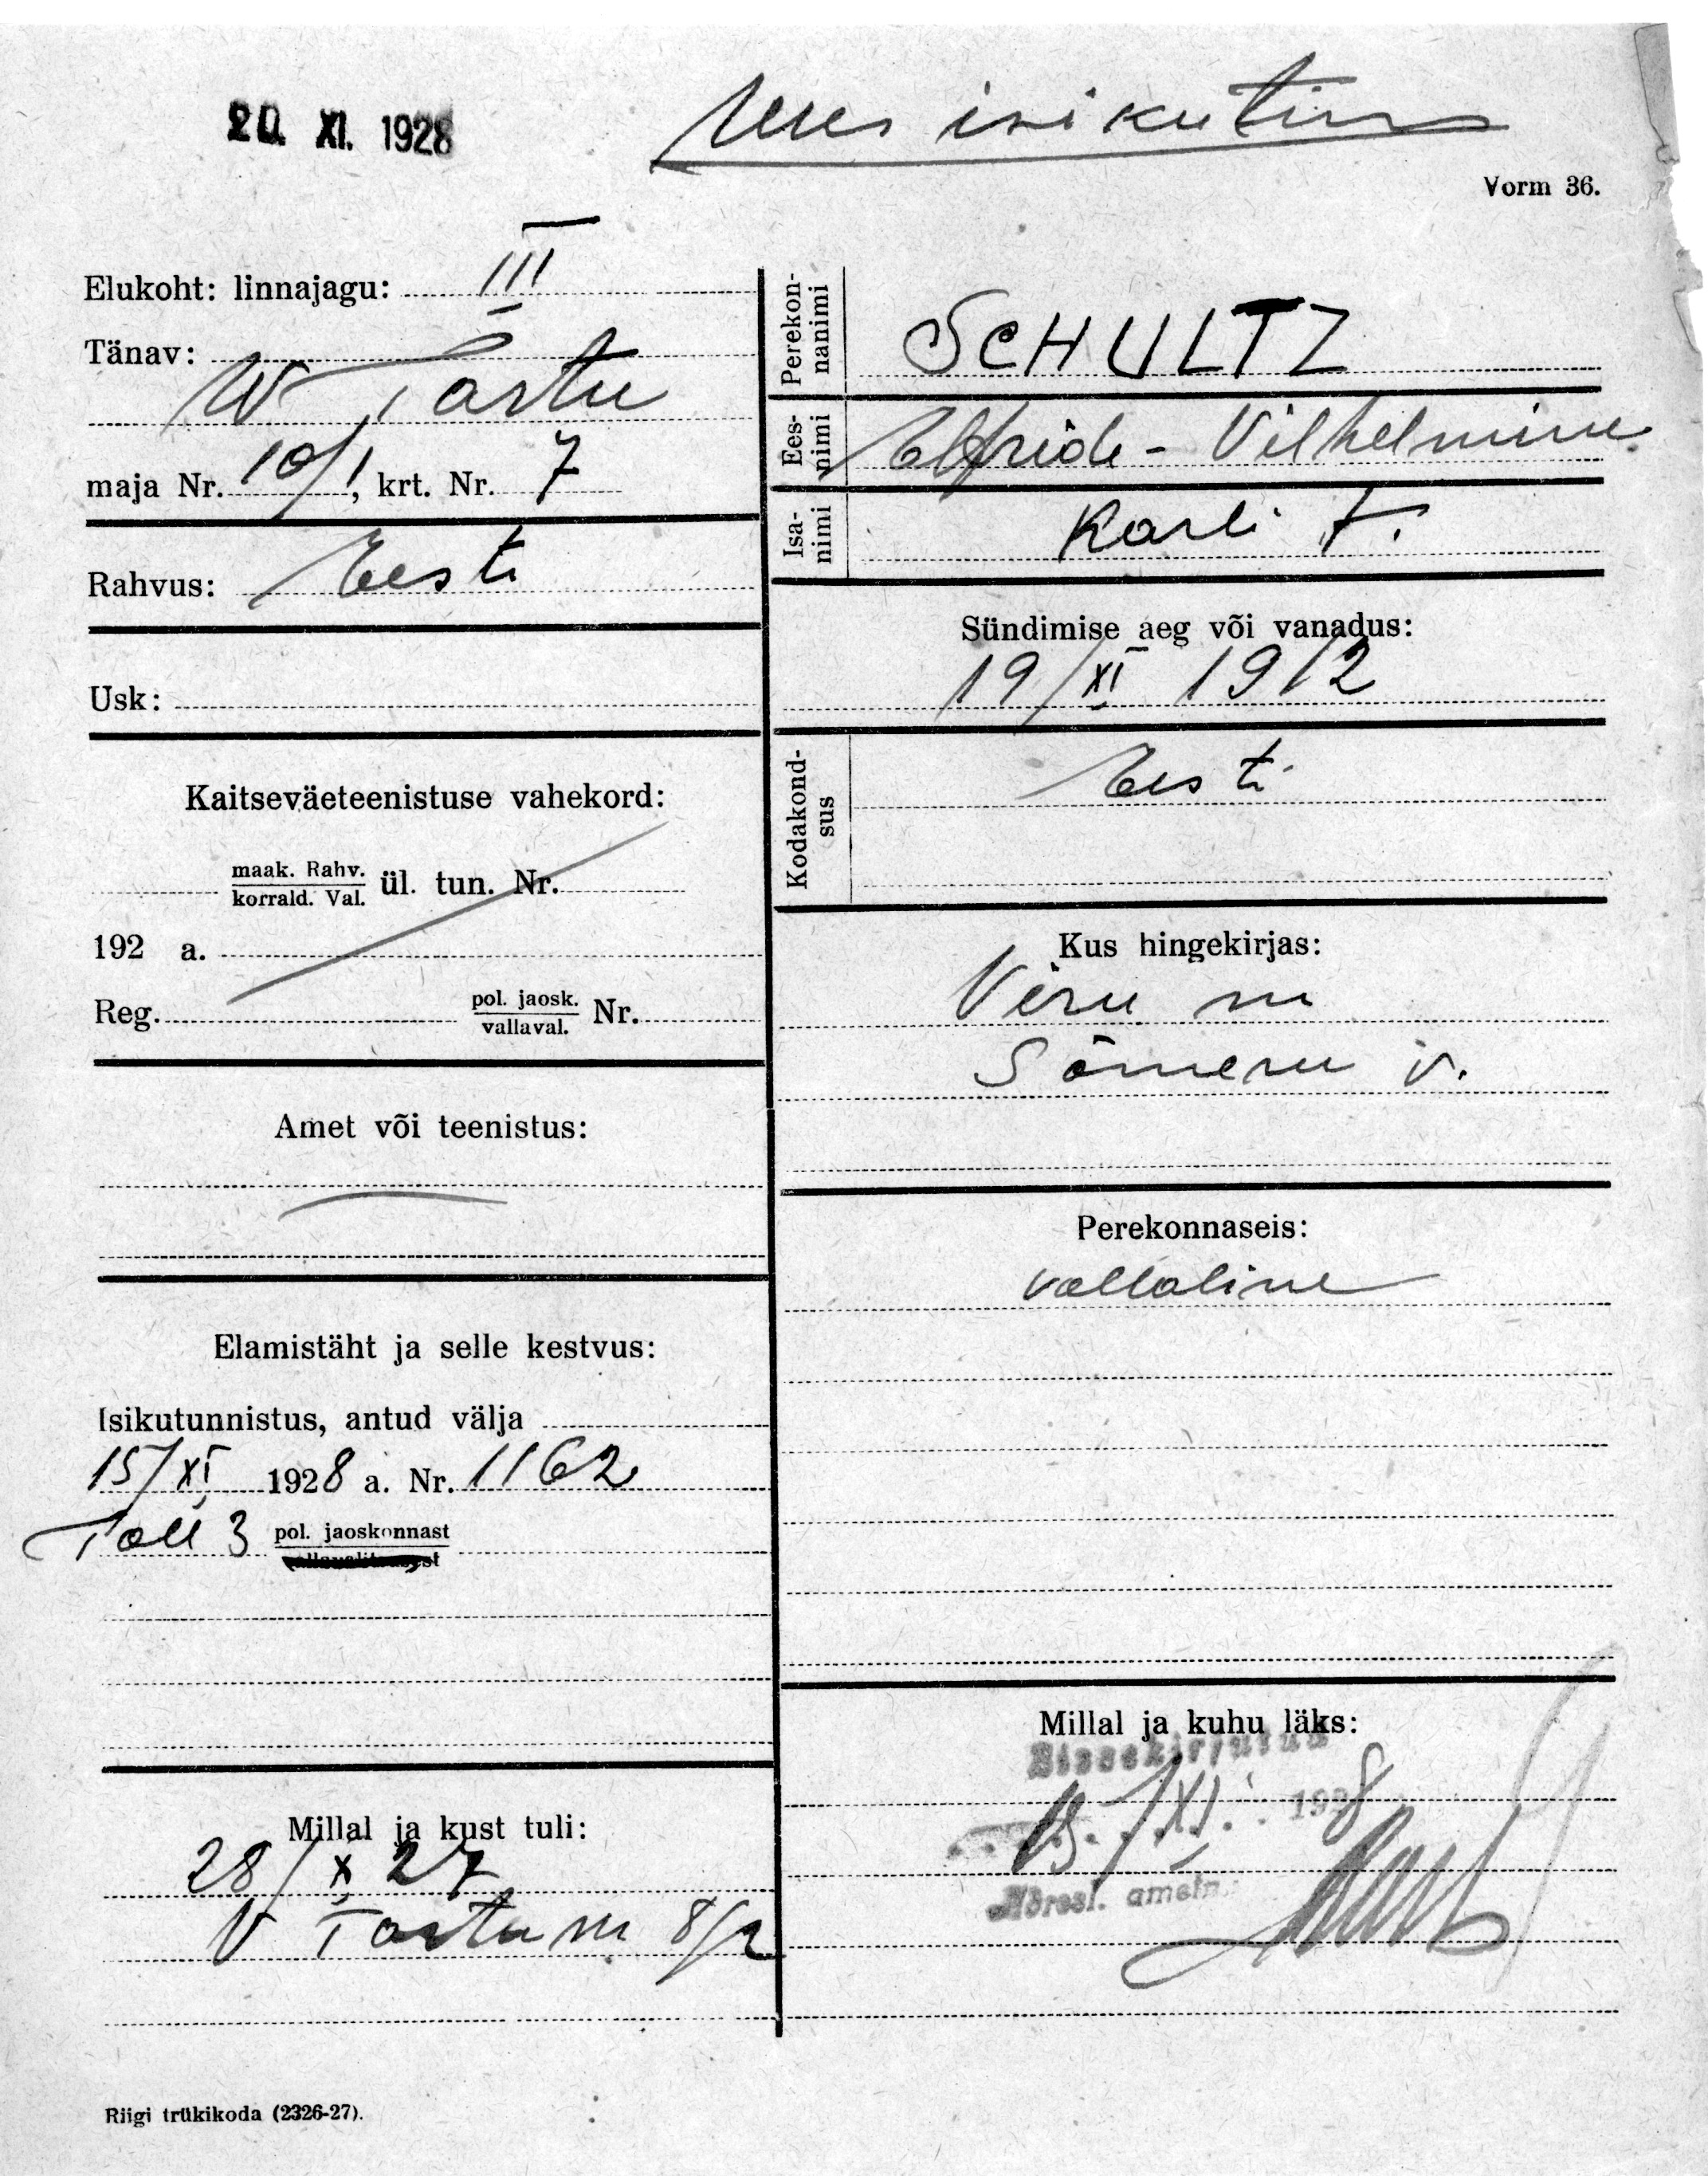 20. XI. 1928
Uus isikutun
Vorm 36.
Elukoht: linnajagu: III
Tänav:
W Tartu
maja Nr. 10/1, krt. Nr. 7
Rahvus: Eesti
Usk:
Kaitseväeteenistuse vahekord:
maak. Rahv.
korrald. Val. ül. tun. Nr.
192 a.
Reg. pol. jaosk.
vallaval. Nr.
Amet või teenistus:
Elamistäht ja selle kestvus:
Isikutunnistus, antud välja
15/XI 1928 a. Nr. 1162
Tall 3 pol. jaoskonnast
Millal ja kust tuli:
28/X 27
V Tartu m 8/2
Riigi trükikoda (2326-27).
Perekon-
nanimi
SCHULTZ
Ees-
nimi
Elfride - Vilhelmine
Isa-
nimi
Karli t.
Sündimise aeg või vanadus:
19/XI 1912
Kodakond-
sus
Eesti
Kus hingekirjas:
Viru m
Sõmeru v.
Perekonnaseis:
vallaline
Millal ja kuhu läks:
Sissekirjutud
/XI. 1928
ametn.